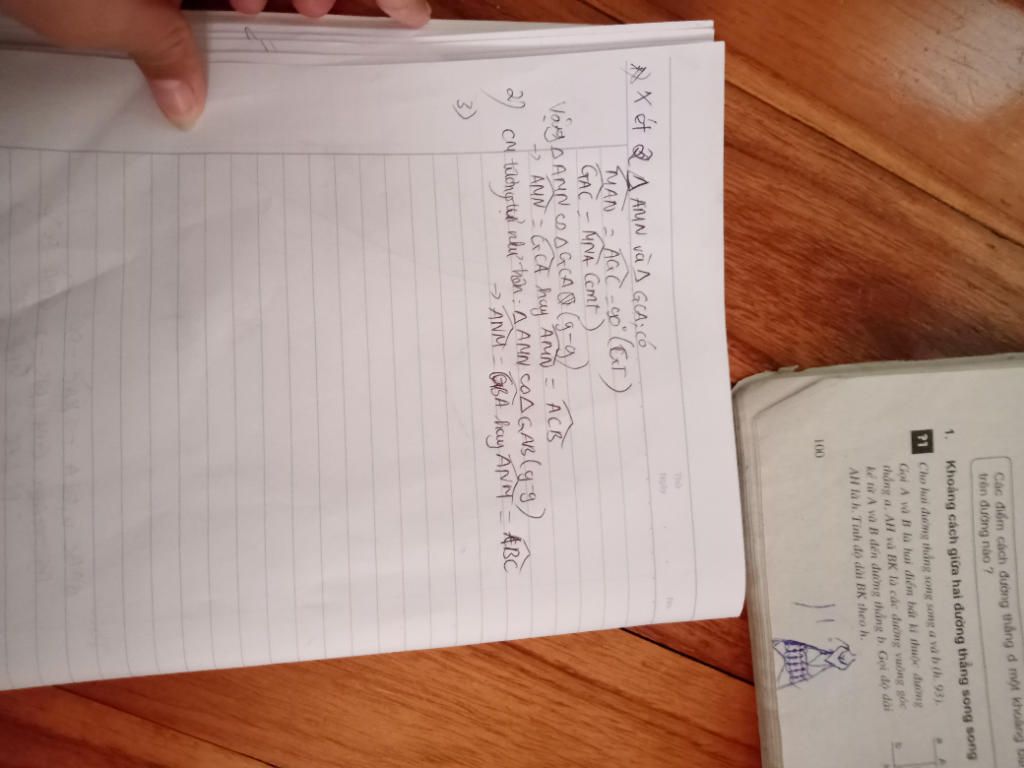 1) Xét 2 Δ AMN và Δ GCA có
= AGC = 90° (
GAC = MNA (cmt)
Vậy Δ AMN ∽ Δ GCA (g-g)
→ AMN = GCA hay AMN = ACB
2) CN tương tự như trên: Δ AMN ∽ Δ GAB (g-g)
→ ANM = GBA hay ANM = ABC
3)
Thứ
Ngày
No.
Các điểm cách đường thẳng d một khoảng
trên đường nào ?
1. Khoảng cách giữa hai đường thẳng song song
?1 Cho hai đường thẳng song song a và b (h. 93).
Gọi A và B là hai điểm bất kì thuộc đường
thẳng a, AH và BK là các đường vuông góc
kẻ từ A và B đến đường thẳng b. Gọi độ dài
AH là h. Tính độ dài BK theo h.
a A
b
100